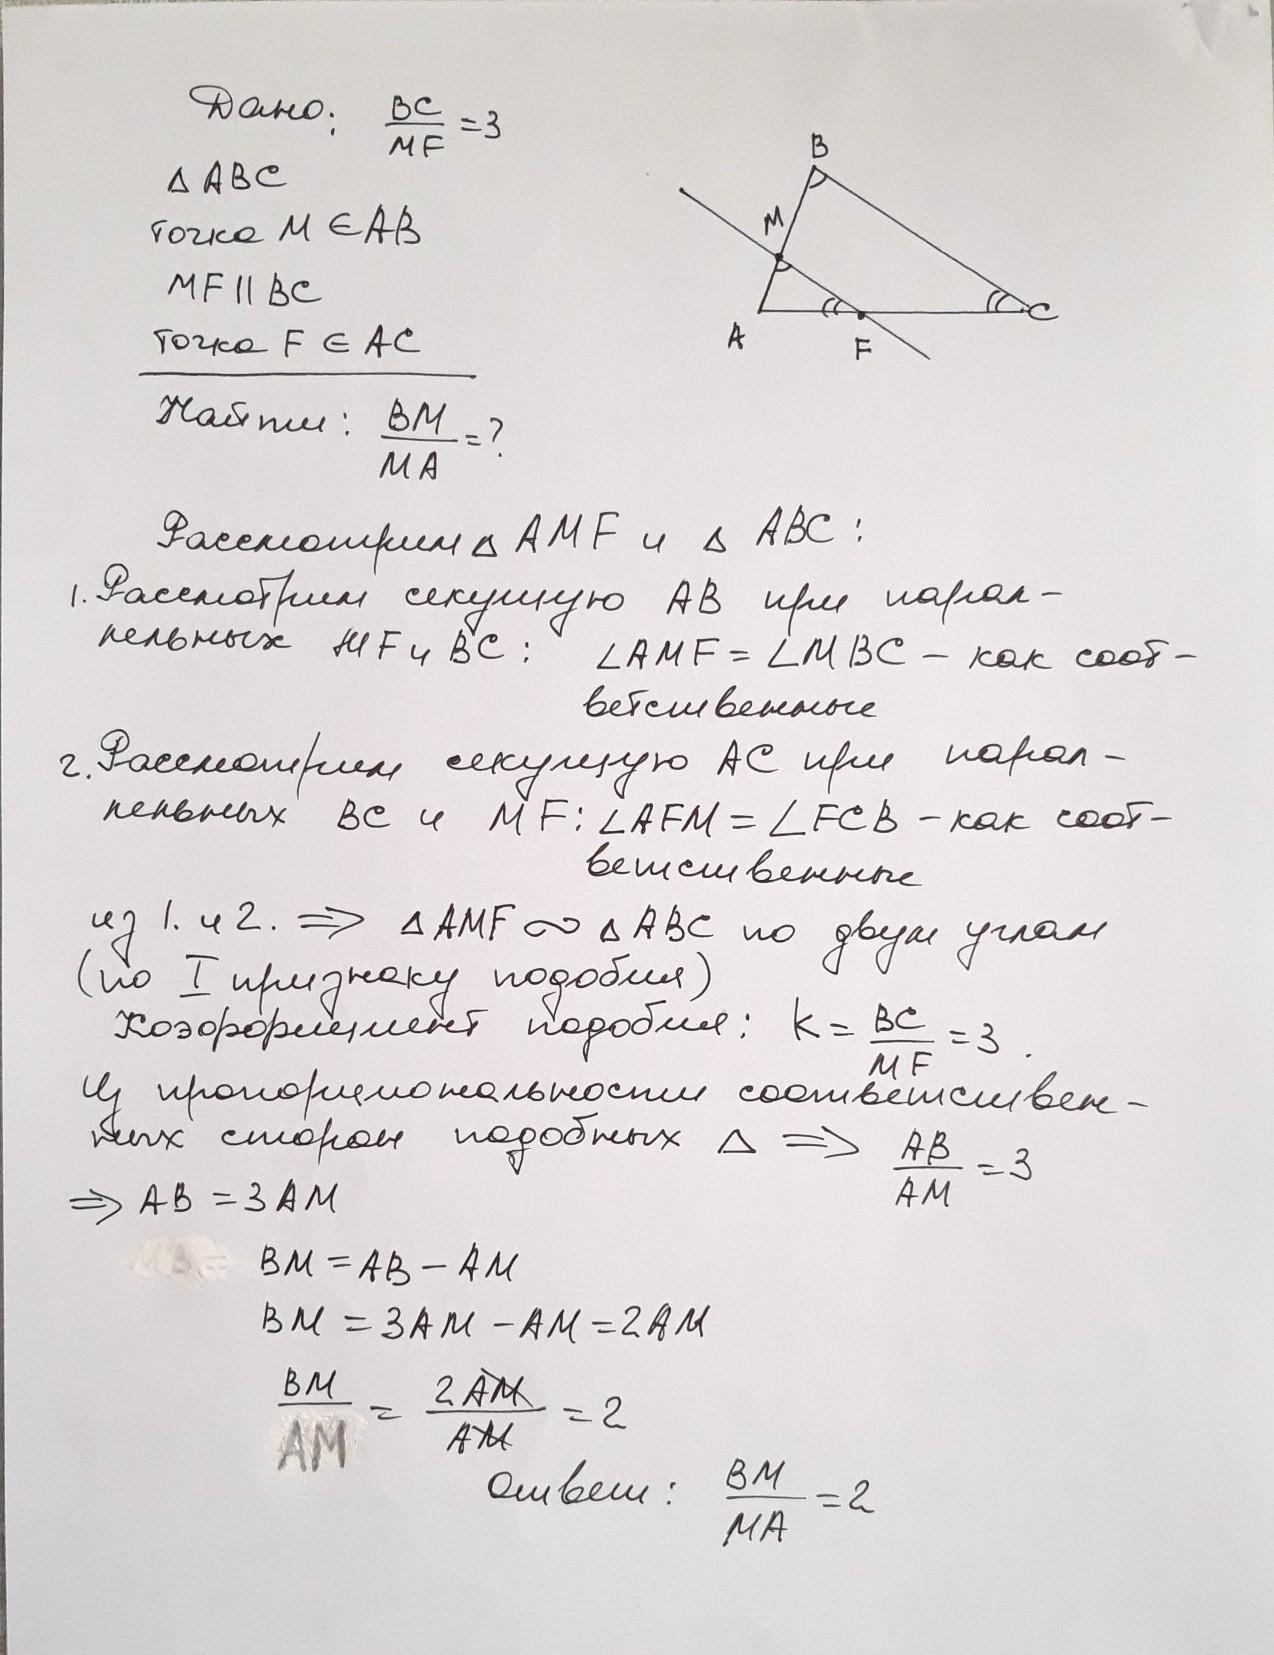 Дано: BC/MF = 3
△ABC
точка M ∈ AB
MF || BC
точка F ∈ AC
Найти: BM/MA = ?
B
M
A
F
C
Рассмотрим △ AMF и △ ABC:
1. Рассмотрим секущую AB при парал-
лельных MF и BC: ∠AMF = ∠MBC – как соот-
ветственные
2. Рассмотрим секущую AC при парал-
лельных BC и MF: ∠AFM = ∠FCB – как соот-
ветственные
из 1. и 2. ⇒ △AMF ∾ △ABC по двум углам
(по I признаку подобия)
Коэффициент подобия: k = BC/MF = 3.
Из пропорциональности соответствен-
ных сторон подобных △ ⇒ AB/AM = 3
⇒ AB = 3AM
BM = AB – AM
BM = 3AM – AM = 2AM
BM/AM = 2AM/AM = 2
Ответ: BM/MA = 2